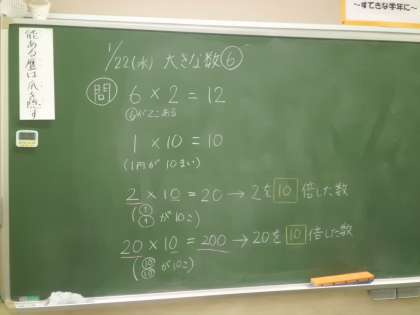 〜すてきな学年に〜
能ある鷹は爪を隠す
1/22(水) 大きな数⑥
問 6 × 2 = 12
(6が2こある
1 × 10 = 10
(1円が10まい)
2 × 10 = 20 → 2を 10 倍した数
(① ① が10こ)
20 × 10 = 200 → 20を 10 倍した数
(⑩ ⑩ が10こ)